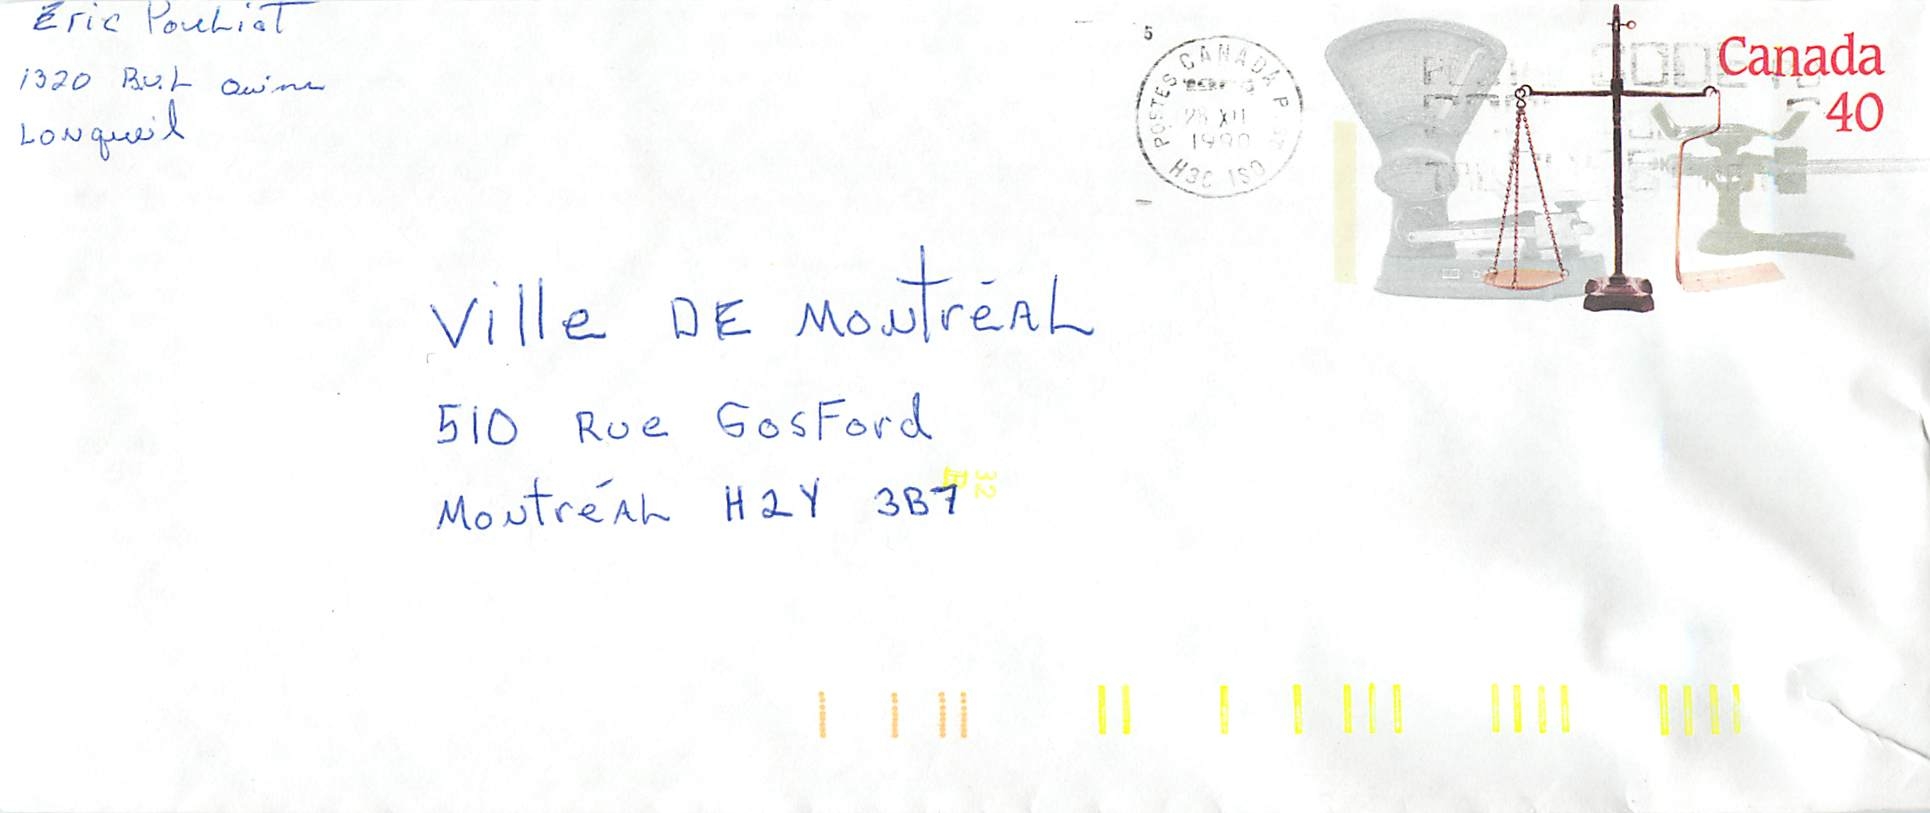 Eric Pouliot
1320 Bul
Lonqueil
5
POSTES CANADA P
28 XII
1990
H3C 1S0
Canada
40
Ville DE Montréal
510 Rue Gosford
Montréal H2Y 3B7
32
E